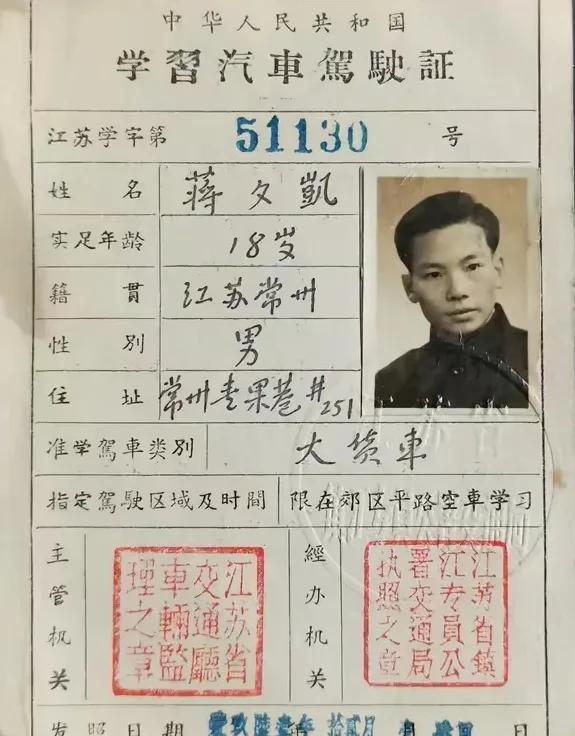 中华人民共和国
学習汽車駕駛証
江苏学字第 51130 号
姓名 蒋文凱
实足年龄 18岁
籍貫 江苏常州
性別 男
住址 常州青果巷#251
准学駕車类別 大貨車
指定駕駛区域及时間 限在郊区平路空車学习
主管机关
江苏省
交通廳
車輛監
理之章
經办机关
江苏省鎮
江专員公
署交通局
执照之章
发照日期 年 拾贰月 日